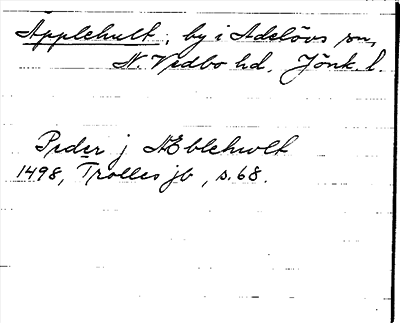 Äpplehult, by i Adelövs sn,
N. Vedbo hd, Jönk. l.
Peder j Æblehwlt
1498, Trolles jb, s. 68.